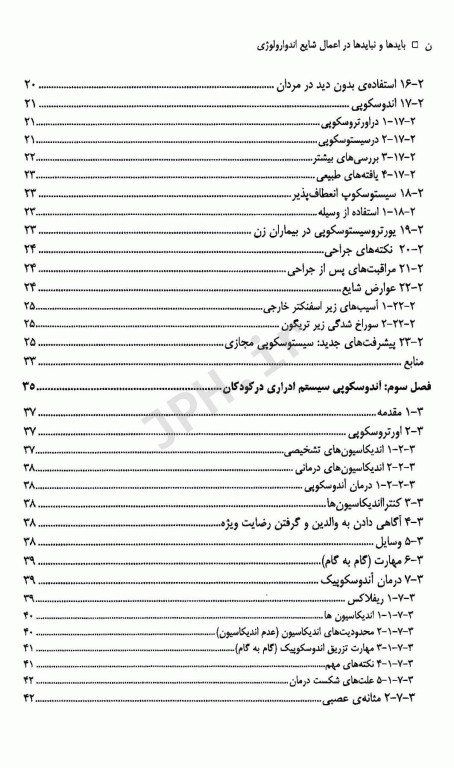 ن □ بایدها و نبایدها در اعمال شایع اندوارولوژی
۲-۱۶ استفاده‌ی بدون دید در مردان ........ ۲۰
۲-۱۷ اندوسکوپی ........ ۲۱
۲-۱۷-۱ دراورتروسکوپی ........ ۲۱
۲-۱۷-۲ درسیستوسکوپی ........ ۲۱
۲-۱۷-۳ بررسی‌های بیشتر ........ ۲۲
۲-۱۷-۴ یافته‌های طبیعی ........ ۲۳
۲-۱۸ سیستوسکوپ انعطاف‌پذیر ........ ۲۳
۲-۱۸-۱ استفاده از وسیله ........ ۲۳
۲-۱۹ یورتروسیستوسکوپی در بیماران زن ........ ۲۳
۲-۲۰ نکته‌های جراحی ........ ۲۴
۲-۲۱ مراقبت‌های پس از جراحی ........ ۲۴
۲-۲۲ عوارض شایع ........ ۲۴
۲-۲۲-۱ آسیب‌های زیر اسفنکتر خارجی ........ ۲۵
۲-۲۲-۲ سوراخ شدگی زیر تریگون ........ ۲۵
۲-۲۳ پیشرفت‌های جدید: سیستوسکوپی مجازی ........ ۲۵
منابع ........ ۳۳
فصل سوم: آندوسکوپی سیستم ادراری درکودکان ........ ۳۵
۳-۱ مقدمه ........ ۳۷
۳-۲ اورتروسکوپی ........ ۳۷
۳-۲-۱ اندیکاسیون‌های تشخیصی ........ ۳۷
۳-۲-۲ اندیکاسیون‌های درمانی ........ ۳۸
۳-۲-۲-۱ درمان آندوسکوپی ........ ۳۸
۳-۳ کنترااندیکاسیون‌ها ........ ۳۸
۳-۴ آگاهی دادن به والدین و گرفتن رضایت ویژه ........ ۳۸
۳-۵ وسایل ........ ۳۸
۳-۶ مهارت (گام به گام) ........ ۳۹
۳-۷ درمان آندوسکوپیک ........ ۳۹
۳-۷-۱ ریفلاکس ........ ۳۹
۳-۷-۱-۱ اندیکاسیون ها ........ ۴۰
۳-۷-۱-۲ محدودیت‌های اندیکاسیون (عدم اندیکاسیون) ........ ۴۰
۳-۷-۱-۳ مهارت تزریق اندوسکوپیک (گام به گام) ........ ۴۱
۳-۷-۱-۴ نکته‌های مهم ........ ۴۱
۳-۷-۱-۵ علت‌های شکست درمان ........ ۴۲
۳-۷-۲ مثانه‌ی عصبی ........ ۴۲
JPH.ir